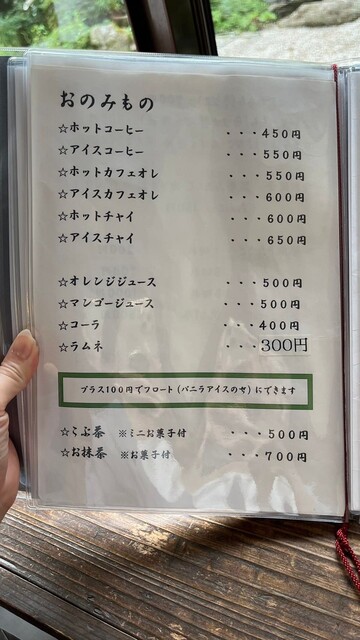 おのみもの
☆ホットコーヒー ・・・450円
☆アイスコーヒー ・・・550円
☆ホットカフェオレ ・・・550円
☆アイスカフェオレ ・・・600円
☆ホットチャイ ・・・600円
☆アイスチャイ ・・・650円
☆オレンジジュース ・・・500円
☆マンゴージュース ・・・500円
☆コーラ ・・・400円
☆ラムネ ・・・300円
プラス100円でフロート(バニラアイスのせ)にできます
☆こぶ茶 ※ミニお菓子付 ・・・500円
☆お抹茶 ※お菓子付 ・・・700円